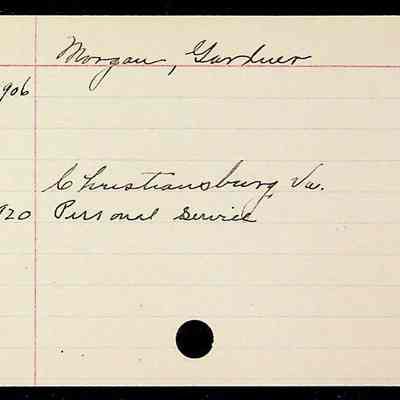 Morgan, Gardner
906
Christiansburg Va.
920 Personal Service